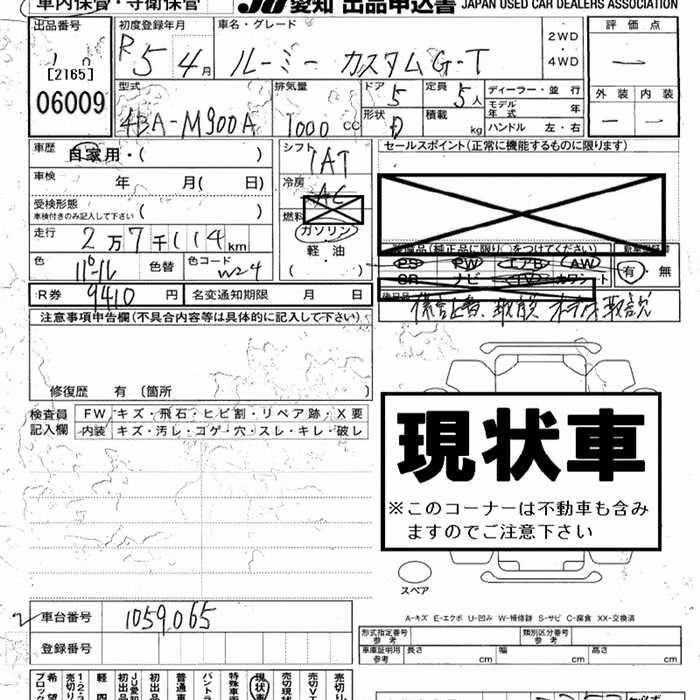 車内保管・守衛保管
JU愛知 出品申込書 JAPAN USED CAR DEALERS ASSOCIATION
出品番号
[2165]
06009
初度登録年月
R5 4月
車名・グレード
ルーミー カスタムG-T
2WD
・
4WD
評価点
—
外装 内装
— —
型式
4BA-M900A
排気量
1000 cc
ドア
5
定員
5人
形状
積載
kg
ディーラー・並行
モデル年式 年
ハンドル 左・右
車歴
自家用・( )
シフト
1AT
セールスポイント(正常に機能するものに限ります)
車検
年 月( 日)
冷房
AC
受検形態
車検付きのみ記入して下さい ( )
燃料
ガソリン
軽・油
( )
走行
2万7千114km
色
パール
色替
色コード
W24
R券 9410 円
名変通知期限 月 日
(純正品に限り○をつけてください)
PS PW エアB AW
SR ナビ TV カワシート
有・無
注意事項申告欄(不具合内容等は具体的に記入して下さい)
修復歴 有 〔箇所 〕
検査員記入欄
FW キズ・飛石・ヒビ割・リペア跡・X要
内装 キズ・汚レ・コゲ・穴・スレ・キレ・破レ
現状車
※このコーナーは不動車も含み
ますのでご注意下さい
スペア
A-キズ E-エクボ U-凹み W-補修跡 S-サビ C-腐食 XX-交換済
車台番号 1059065
登録番号
形式指定番号
参考
類別区分番号
参考
車庫証明用
参考
長さ cm 幅 cm 高さ cm
希望
ブロック
軽四
初出品
JU愛知
初出品
普通車
バントラ
特殊車両
現状車
売切現状
売切VT
売切り